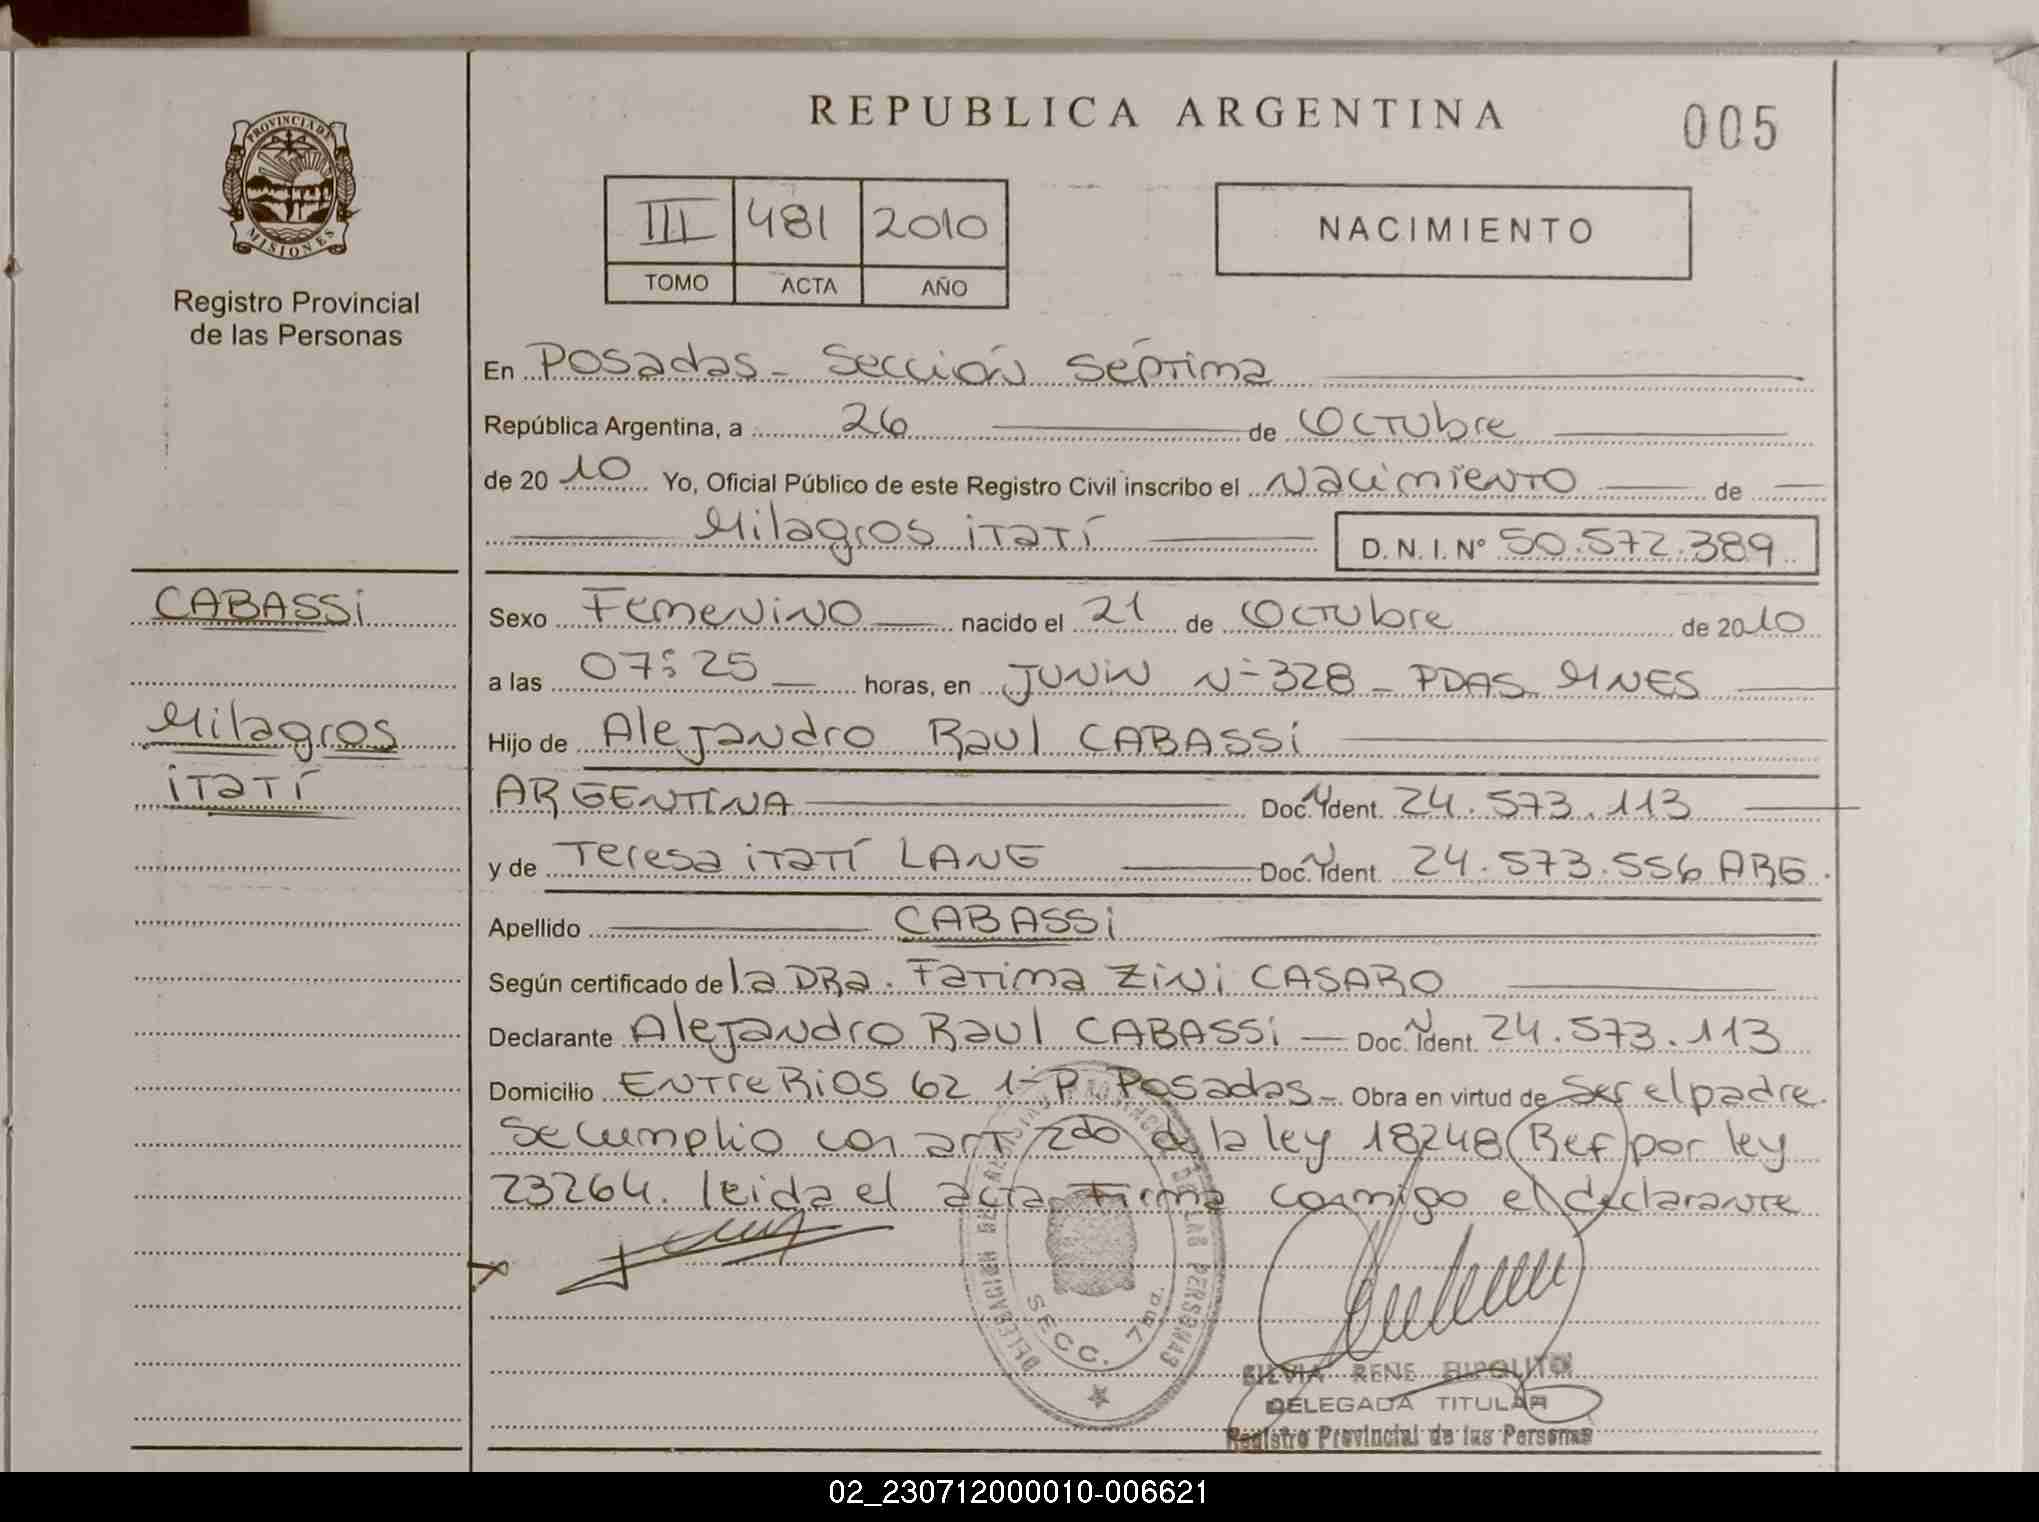 REPUBLICA ARGENTINA
005
PROVINCIA DE
MISIONES
Registro Provincial
de las Personas
III 481 2010
TOMO ACTA AÑO
NACIMIENTO
En Posadas - Sección Séptima
República Argentina, a 26 de Octubre
de 2010 Yo, Oficial Público de este Registro Civil inscribo el Nacimiento de
Milagros itatí D. N. I. Nº 50.572.389
CABASSi
Milagros
itatí
Sexo Femenino nacido el 21 de Octubre de 2010
a las 07:25 horas, en JUNIN Nº 328 - PDAS MNES
Hijo de Alejandro Raul CABASSi
ARGENTINA Doc. Ident. 24.573.113
y de Teresa itatí LANG Doc. Ident. 24.573.556 ARG.
Apellido CABASSi
Según certificado de la DRa. Fatima Zini CASARO
Declarante Alejandro Raul CABASSi Doc. Ident. 24.573.113
Domicilio Entre Rios 62 1º P Posadas - Obra en virtud de Ser el padre.
Se cumplio con art 2do de la ley 18248 (Ref) por ley
23264. leida el acta firma conmigo el declarante
DELEGACION DE LAS PERSONAS
SECC. 7ma.
SILVIA RENE HIPOLITO
DELEGADA TITULAR
Registro Provincial de las Personas
02_230712000010-006621